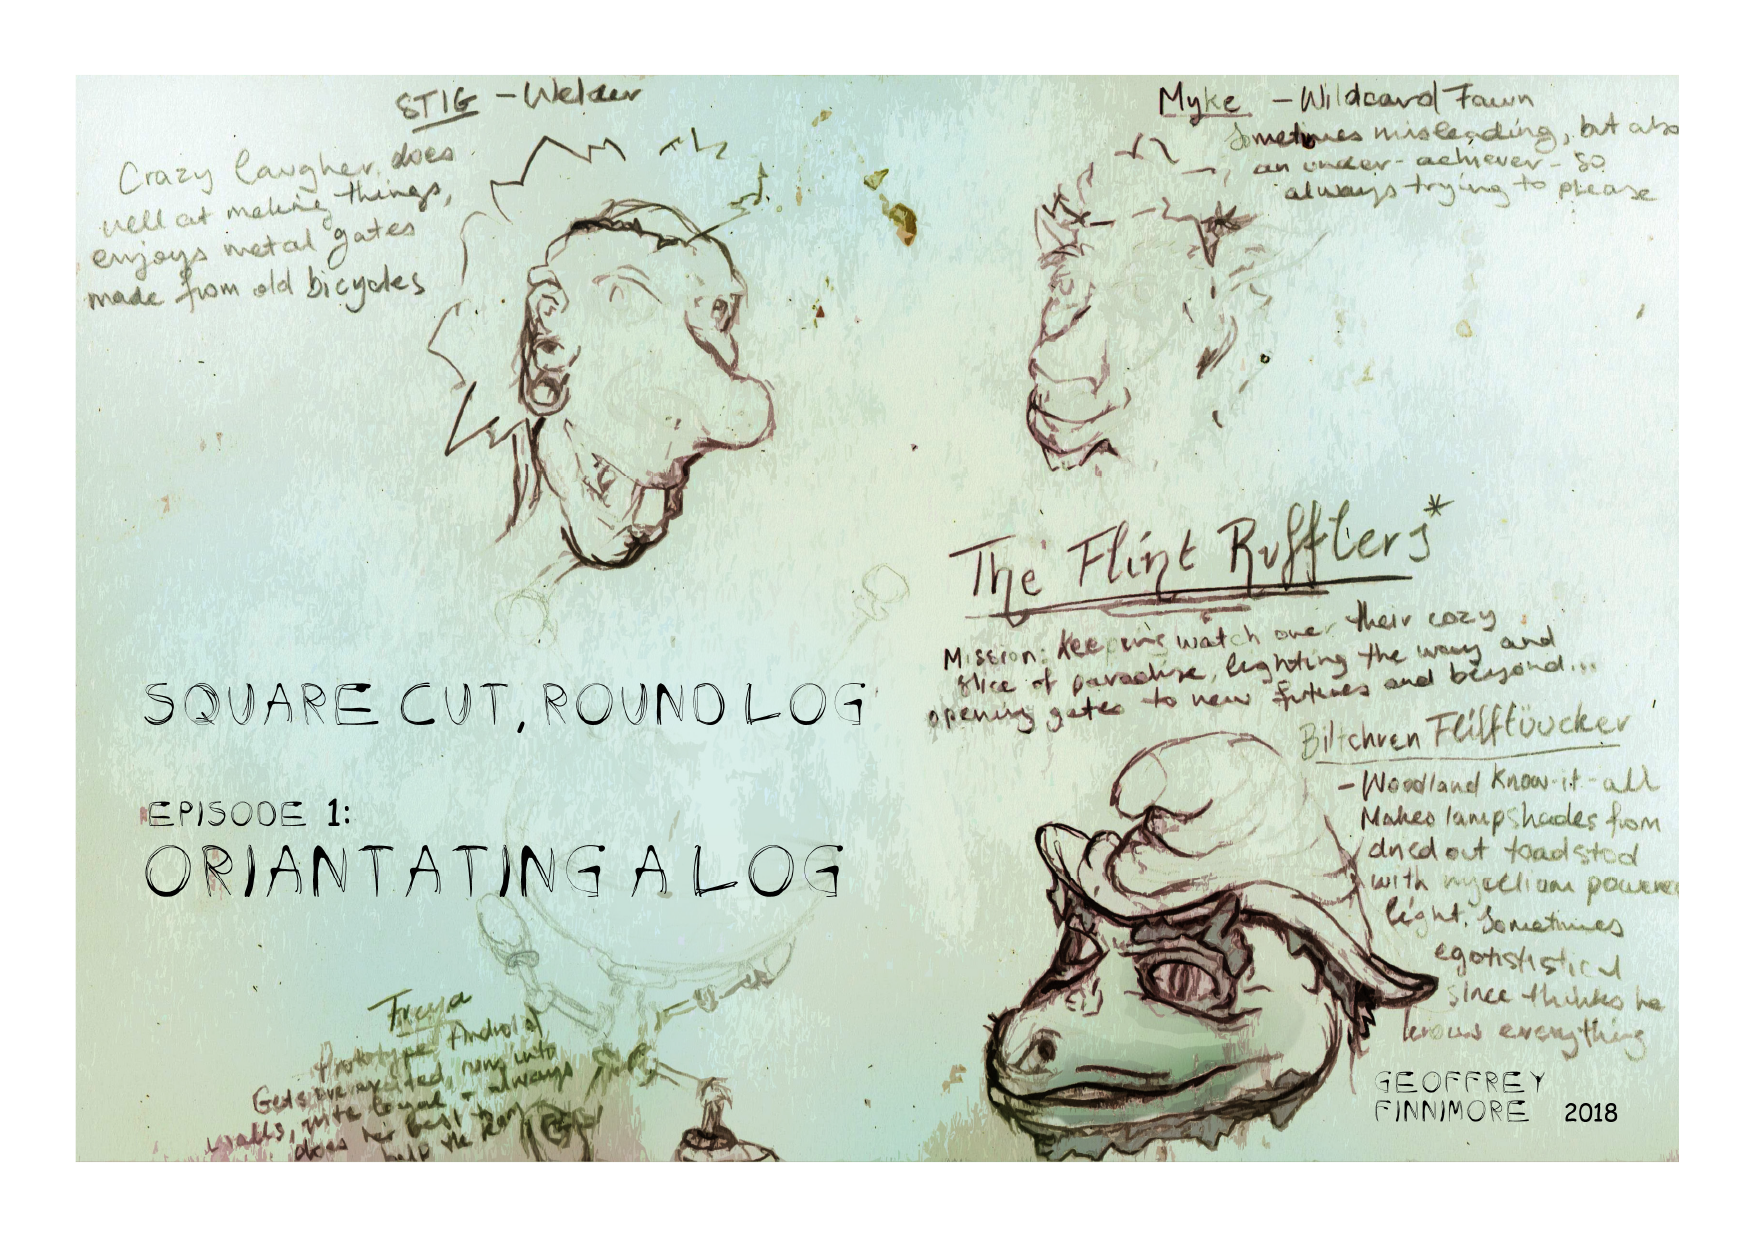 STIG - Welder
Crazy laugher, does
well at making things,
enjoys metal gates
made from old bicycles
Myke - Wildcard Fawn
Sometimes misleading, but also
an under-achiever - so
always trying to please
The Flint Rufflers*
Mission: Keeping watch over their cozy
slice of paradise, lighting the way and
opening gates to new futures and beyond...
SQUARE CUT, ROUND LOG
EPISODE 1:
ORIANTATING A LOG
Biltchren Flifflüücker
- Woodland Know-it-all
Makes lampshades from
dried out toadstod
with mycelium powered
light. Sometimes
egotististical
since thinks he
knows everything
Freya
Prototype Android
Gets overexcited, runs into
walls, quite loyal - always
does her best
help the
GEOFFREY
FINNIMORE 2018